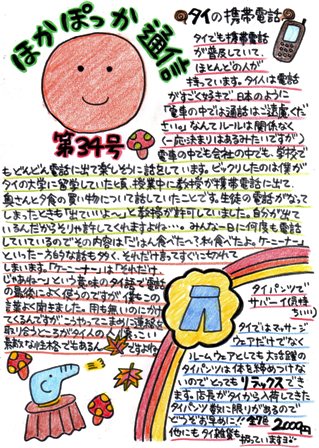 ほかぽっか通信
第34号
タイの携帯電話
タイでも携帯電話
が普及していて、
ほとんどの人が
持っています。タイ人は電話
がすごく好きで、日本のように
「電車の中では通話はご遠慮くだ
さい。」なんてルールは関係なく
(一応決まりはあるみたいですが)
電車の中でも会社の中でも、学校で
もどんどん電話に出て楽しそうに話をしています。ビックリしたのは僕が
タイの大学に留学していた頃、授業中に教授が携帯電話に出て、
奥さんと夕食の買い物について話していたことです。生徒の電話がなって
しまったときも「出ていいよ〜」と教授が許可していました。自分が出て
いるんだからそりゃ許してくれますよね…。みんな一日に何度も電話
しているのでその内容は「ごはん食べた〜?私食べたよ。ケニーナー」
といった一方的な話も多く、それだけ言ってすぐに切れて
しまいます。「ケニーナー」は「それだけ、
じゃあね〜」という意味のタイ語で電話
の最後によく使うのですが、僕もこの
言葉よく聞きました。用も無いのにかけ
てくるんですが、こうやってこまめに連絡を
取り合うところがタイ人の人懐こい
素敵な性格でもあるんですよね
タイパンツで
サバーイ(気持
ちいい)
タイではマッサージ
ウェアだけでなく
ルームウェアとしても大活躍の
タイパンツは体を締めつけな
いのでとってもリラックスでき
ます。店長がタイから入荷してきた
タイパンツ数に限りがあるので
どうぞお早めに!! 全7色 2000円
他にもタイ雑貨も
扱っていますよ